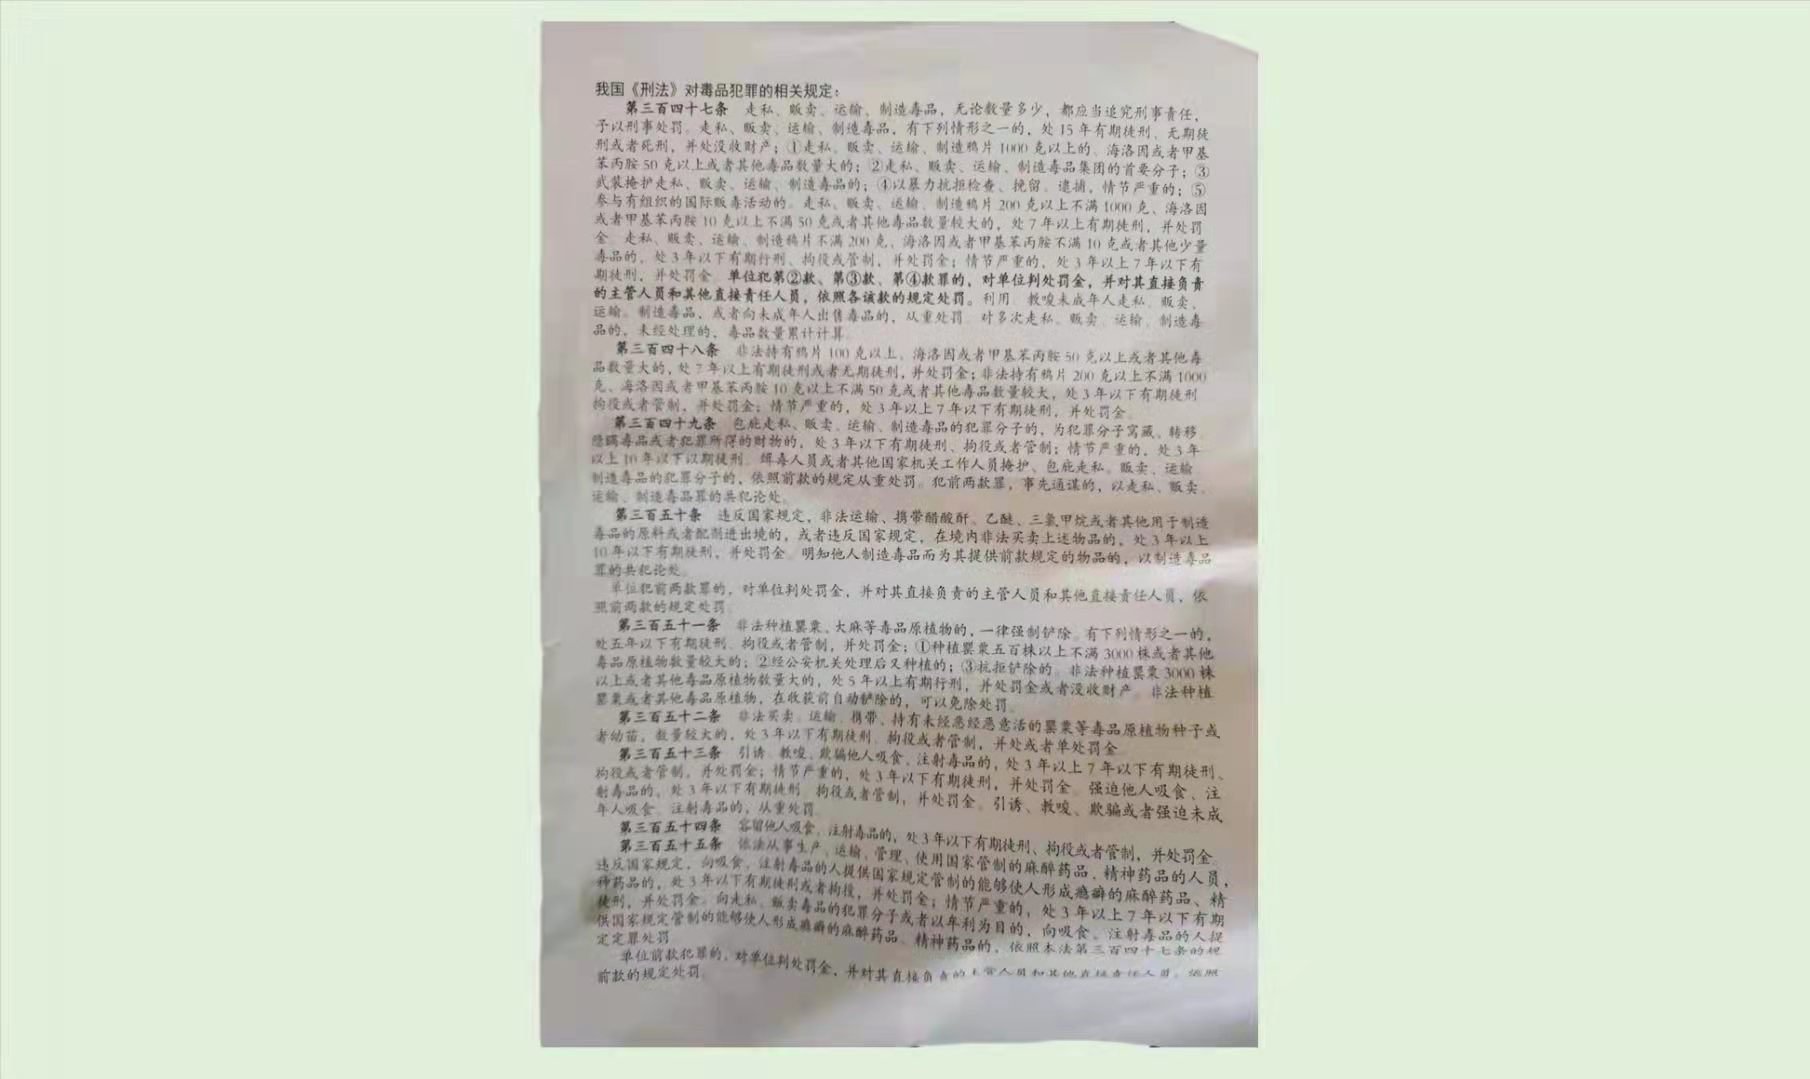 我国《刑法》对毒品犯罪的相关规定：
第三百四十七条 走私、贩卖、运输、制造毒品，无论数量多少，都应当追究刑事责任，
予以刑事处罚。走私、贩卖、运输、制造毒品，有下列情形之一的，处15年有期徒刑、无期徒
刑或者死刑，并处没收财产；①走私、贩卖、运输、制造鸦片1000克以上的、海洛因或者甲基
苯丙胺50克以上或者其他毒品数量大的；②走私、贩卖、运输、制造毒品集团的首要分子；③
武装掩护走私、贩卖、运输、制造毒品的；④以暴力抗拒检查、挽留、逮捕，情节严重的；⑤
参与有组织的国际贩毒活动的。走私、贩卖、运输、制造鸦片200克以上不满1000克、海洛因
或者甲基苯丙胺10克以上不满50克或者其他毒品数量较大的，处7年以上有期徒刑，并处罚
金。走私、贩卖、运输、制造鸦片不满200克、海洛因或者甲基苯丙胺不满10克或者其他少量
毒品的，处3年以下有期行刑、拘役或管制，并处罚金；情节严重的，处3年以上7年以下有
期徒刑，并处罚金。单位犯第②款、第③款、第④款罪的，对单位判处罚金，并对其直接负责
的主管人员和其他直接责任人员，依照各该款的规定处罚。利用、教唆未成年人走私、贩卖、
运输、制造毒品、或者向未成年人出售毒品的，从重处罚。对多次走私、贩卖、运输、制造毒
品的，未经处理的，毒品数量累计计算。
第三百四十八条 非法持有鸦片100克以上、海洛因或者甲基苯丙胺50克以上或者其他毒
品数量大的，处7年以上有期徒刑或者无期徒刑，并处罚金；非法持有鸦片200克以上不满1000
克、海洛因或者甲基苯丙胺10克以上不满50克或者其他毒品数量较大，处3年以下有期徒刑、
拘役或者管制，并处罚金；情节严重的，处3年以上7年以下有期徒刑，并处罚金。
第三百四十九条 包庇走私、贩卖、运输、制造毒品的犯罪分子的，为犯罪分子窝藏、转移、
隐瞒毒品或者犯罪所得的财物的，处3年以下有期徒刑、拘役或者管制；情节严重的，处3年
以上10年以下以期徒刑。缉毒人员或者其他国家机关工作人员掩护、包庇走私、贩卖、运输、
制造毒品的犯罪分子的，依照前款的规定从重处罚。犯前两款罪，事先通谋的，以走私、贩卖、
运输、制造毒品罪的共犯论处。
第三百五十条 违反国家规定，非法运输、携带醋酸酐、乙醚、三氯甲烷或者其他用于制造
毒品的原料或者配剂进出境的，或者违反国家规定，在境内非法买卖上述物品的，处3年以上
10年以下有期徒刑，并处罚金。明知他人制造毒品而为其提供前款规定的物品的，以制造毒品
罪的共犯论处。
单位犯前两款罪的，对单位判处罚金，并对其直接负责的主管人员和其他直接责任人员，依
照前两款的规定处罚。
第三百五十一条 非法种植罂粟、大麻等毒品原植物的，一律强制铲除。有下列情形之一的，
处五年以下有期徒刑、拘役或者管制，并处罚金；①种植罂粟五百株以上不满3000株或者其他
毒品原植物数量较大的；②经公安机关处理后又种植的；③抗拒铲除的。非法种植罂粟3000株
以上或者其他毒品原植物数量大的，处5年以上有期行刑，并处罚金或者没收财产。非法种植
罂粟或者其他毒品原植物，在收获前自动铲除的，可以免除处罚。
第三百五十二条 非法买卖、运输、携带、持有未经恶经恶意活的罂粟等毒品原植物种子或
者幼苗，数量较大的，处3年以下有期徒刑、拘役或者管制，并处或者单处罚金。
第三百五十三条 引诱、教唆、欺骗他人吸食、注射毒品的，处3年以上7年以下有期徒刑、
拘役或者管制，并处罚金；情节严重的，处3年以下有期徒刑，并处罚金。强迫他人吸食、注
射毒品的，处3年以下有期徒刑、拘役或者管制，并处罚金。引诱、教唆、欺骗或者强迫未成
年人吸食、注射毒品的，从重处罚。
第三百五十四条 容留他人吸食、注射毒品的，处3年以下有期徒刑、拘役或者管制，并处罚金。
第三百五十五条 依法从事生产、运输、管理、使用国家管制的麻醉药品、精神药品的人员，
违反国家规定，向吸食、注射毒品的人提供国家规定管制的能够使人形成瘾癖的麻醉药品、精
神药品的，处3年以下有期徒刑或者拘役，并处罚金；情节严重的，处3年以上7年以下有期
徒刑，并处罚金。向走私、贩卖毒品的犯罪分子或者以牟利为目的，向吸食、注射毒品的人提
供国家规定管制的能够使人形成瘾癖的麻醉药品、精神药品的，依照本法第三百四十七条的规
定定罪处罚。
单位前款犯罪的，对单位判处罚金，并对其直接负责的主管人员和其他直接责任人员，依照
前款的规定处罚。